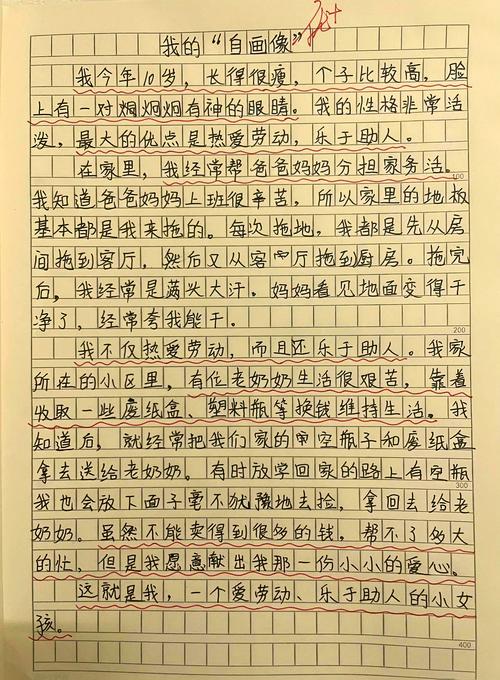 我的“自画像”
优+
我今年10岁，长得很瘦，个子比较高，脸
上有一对炯炯炯有神的眼睛。我的性格非常活
泼，最大的优点是热爱劳动，乐于助人。
在家里，我经常帮爸爸妈妈分担家务活。
100
我知道爸爸妈妈上班很辛苦，所以家里的地板
基本都是我来拖的。每次拖地，我都是先从房
间拖到客厅，然后又从客厅拖到厨房。拖完
后，我经常是满头大汗。妈妈看见地面变得干
净了，经常夸我能干。
200
我不仅热爱劳动，而且还乐于助人。我家
所在的小区里，有位老奶奶生活很艰苦，靠着
收取一些废纸盒、塑料瓶等换钱维持生活。我
知道后，就经常把我们家的空瓶子和废纸盒
拿去送给老奶奶。有时放学回家的路上有空瓶
300
我也会放下面子毫不犹豫地去捡，拿回去给老
奶奶。虽然不能卖得到很多的钱。帮不了多大
的忙，但是我愿意献出我那一份小小的爱心。
这就是我，一个爱劳动、乐于助人的小女
孩。
400